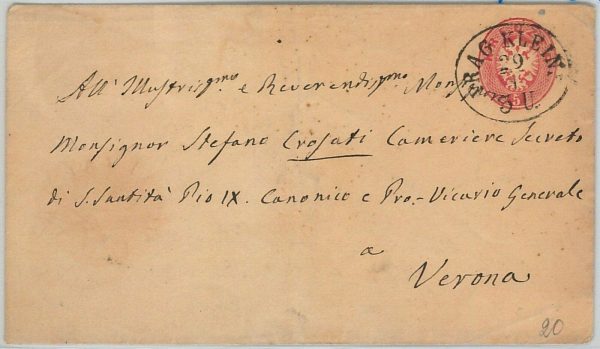 PRAG KLEINS.
29
5
8 U.
All' Illustris.gmo e Reverendis.gmo Mons
Monsignor Stefano Crosati Cameriere Secreto
di S. Santità Pio IX. Canonico e Pro-Vicario Generale
a
Verona
20